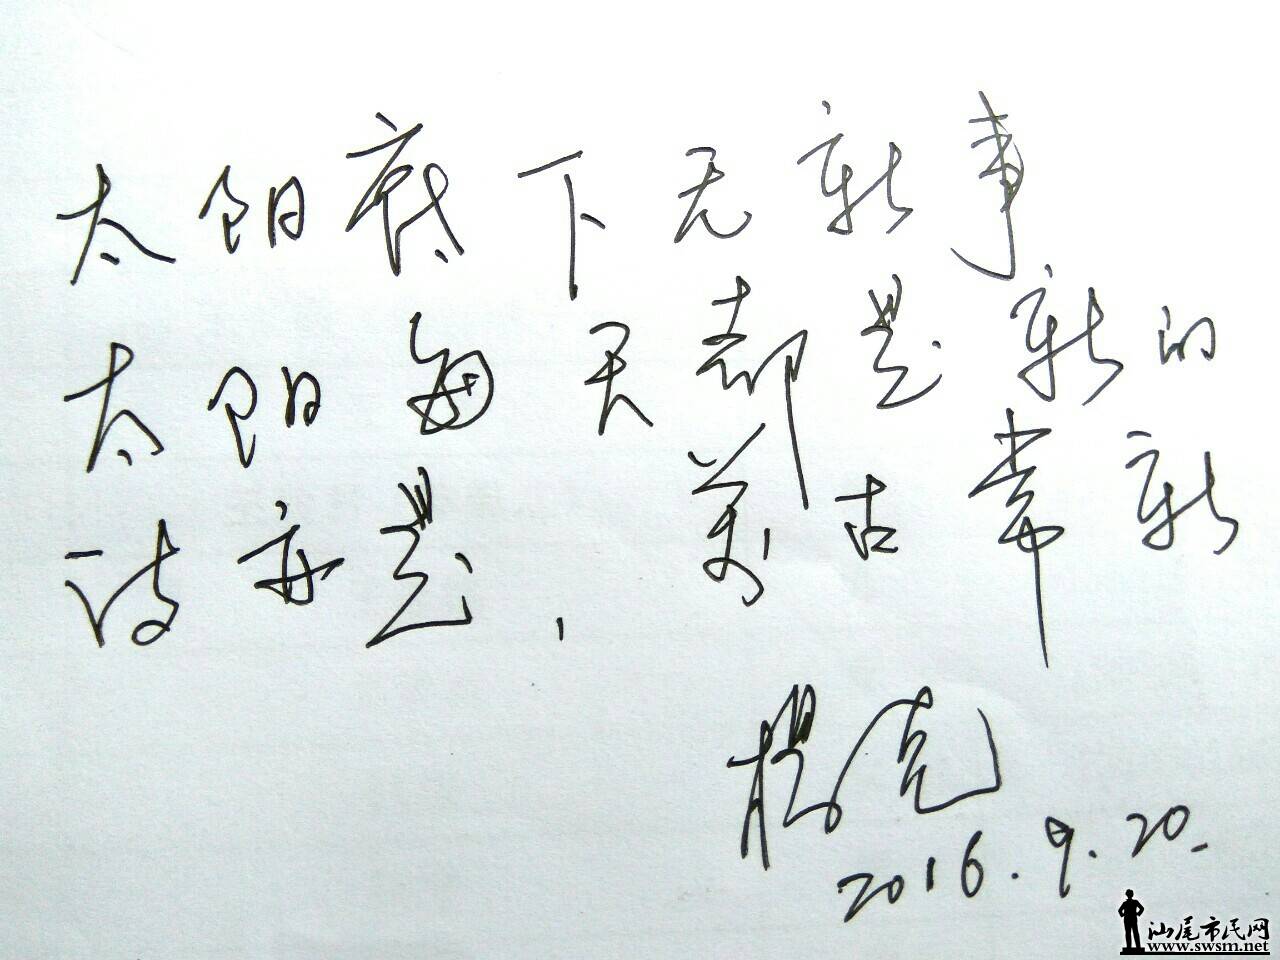 太阳底下无新事
太阳每天都是新的
诗亦是，万古常新
杨克
2016.9.20.
汕尾市民网
www.swsm.net